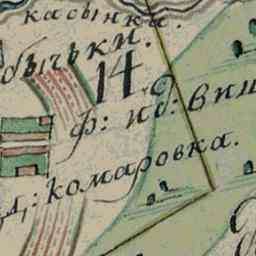 касынка.
бычьки.
14.
ф: иб: вин
д: комаровка.